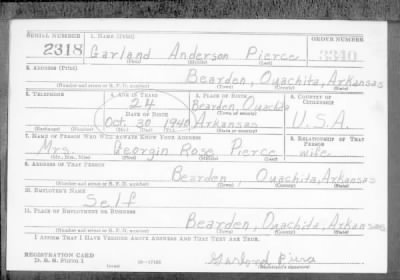 SERIAL NUMBER 1. NAME (Print) ORDER NUMBER
2318 Garland Anderson Pierce 3340
(First) (Middle) (Last)
2. ADDRESS (Print)
Bearden, Ouachita, Arkansas
(Number and street or R. F. D. number) (Town) (County) (State)
3. TELEPHONE 4. AGE IN YEARS 5. PLACE OF BIRTH 6. COUNTRY OF CITIZENSHIP
24 Bearden, Ouachita
DATE OF BIRTH (Town or county)
Oct. 30 1940 Arkansas U.S.A.
(Exchange) (Number) (Mo.) (Day) (Yr.) (State or country)
7. NAME OF PERSON WHO WILL ALWAYS KNOW YOUR ADDRESS 8. RELATIONSHIP OF THAT PERSON
Mrs. Georgin Rose Pierce wife
(Mr., Mrs., Miss) (First) (Middle) (Last)
9. ADDRESS OF THAT PERSON
Bearden, Ouachita, Arkansas
(Number and street or R. F. D. number) (Town) (County) (State)
10. EMPLOYER'S NAME
Self
11. PLACE OF EMPLOYMENT OR BUSINESS
Bearden, Ouachita, Arkansas
(Number and street or R. F. D. number) (Town) (County) (State)
I AFFIRM THAT I HAVE VERIFIED ABOVE ANSWERS AND THAT THEY ARE TRUE.
REGISTRATION CARD
D. S. S. Form 1 16—17105 Garland
(Registrant's signature)